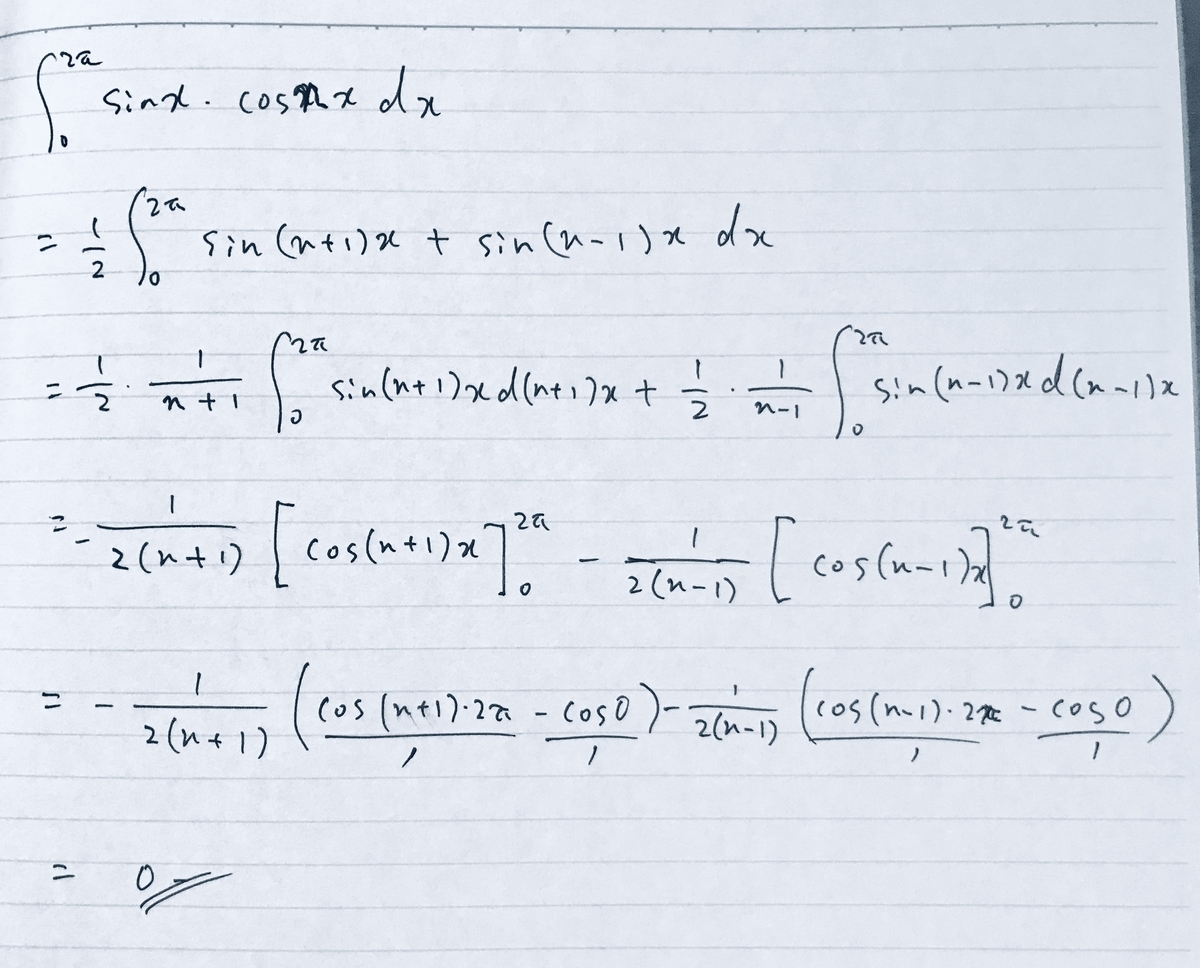 ∫₀^{2π} sinx · cosnx dx
= 1/2 ∫₀^{2π} sin(n+1)x + sin(n-1)x dx
= 1/2 · 1/(n+1) ∫₀^{2π} sin(n+1)x d(n+1)x + 1/2 · 1/(n-1) ∫₀^{2π} sin(n-1)x d(n-1)x
= - 1/(2(n+1)) [cos(n+1)x]₀^{2π} - 1/(2(n-1)) [cos(n-1)x]₀^{2π}
= - 1/(2(n+1)) (cos(n+1)·2π - cos0) - 1/(2(n-1)) (cos(n-1)·2π - cos0)
1 1 1 1
= 0